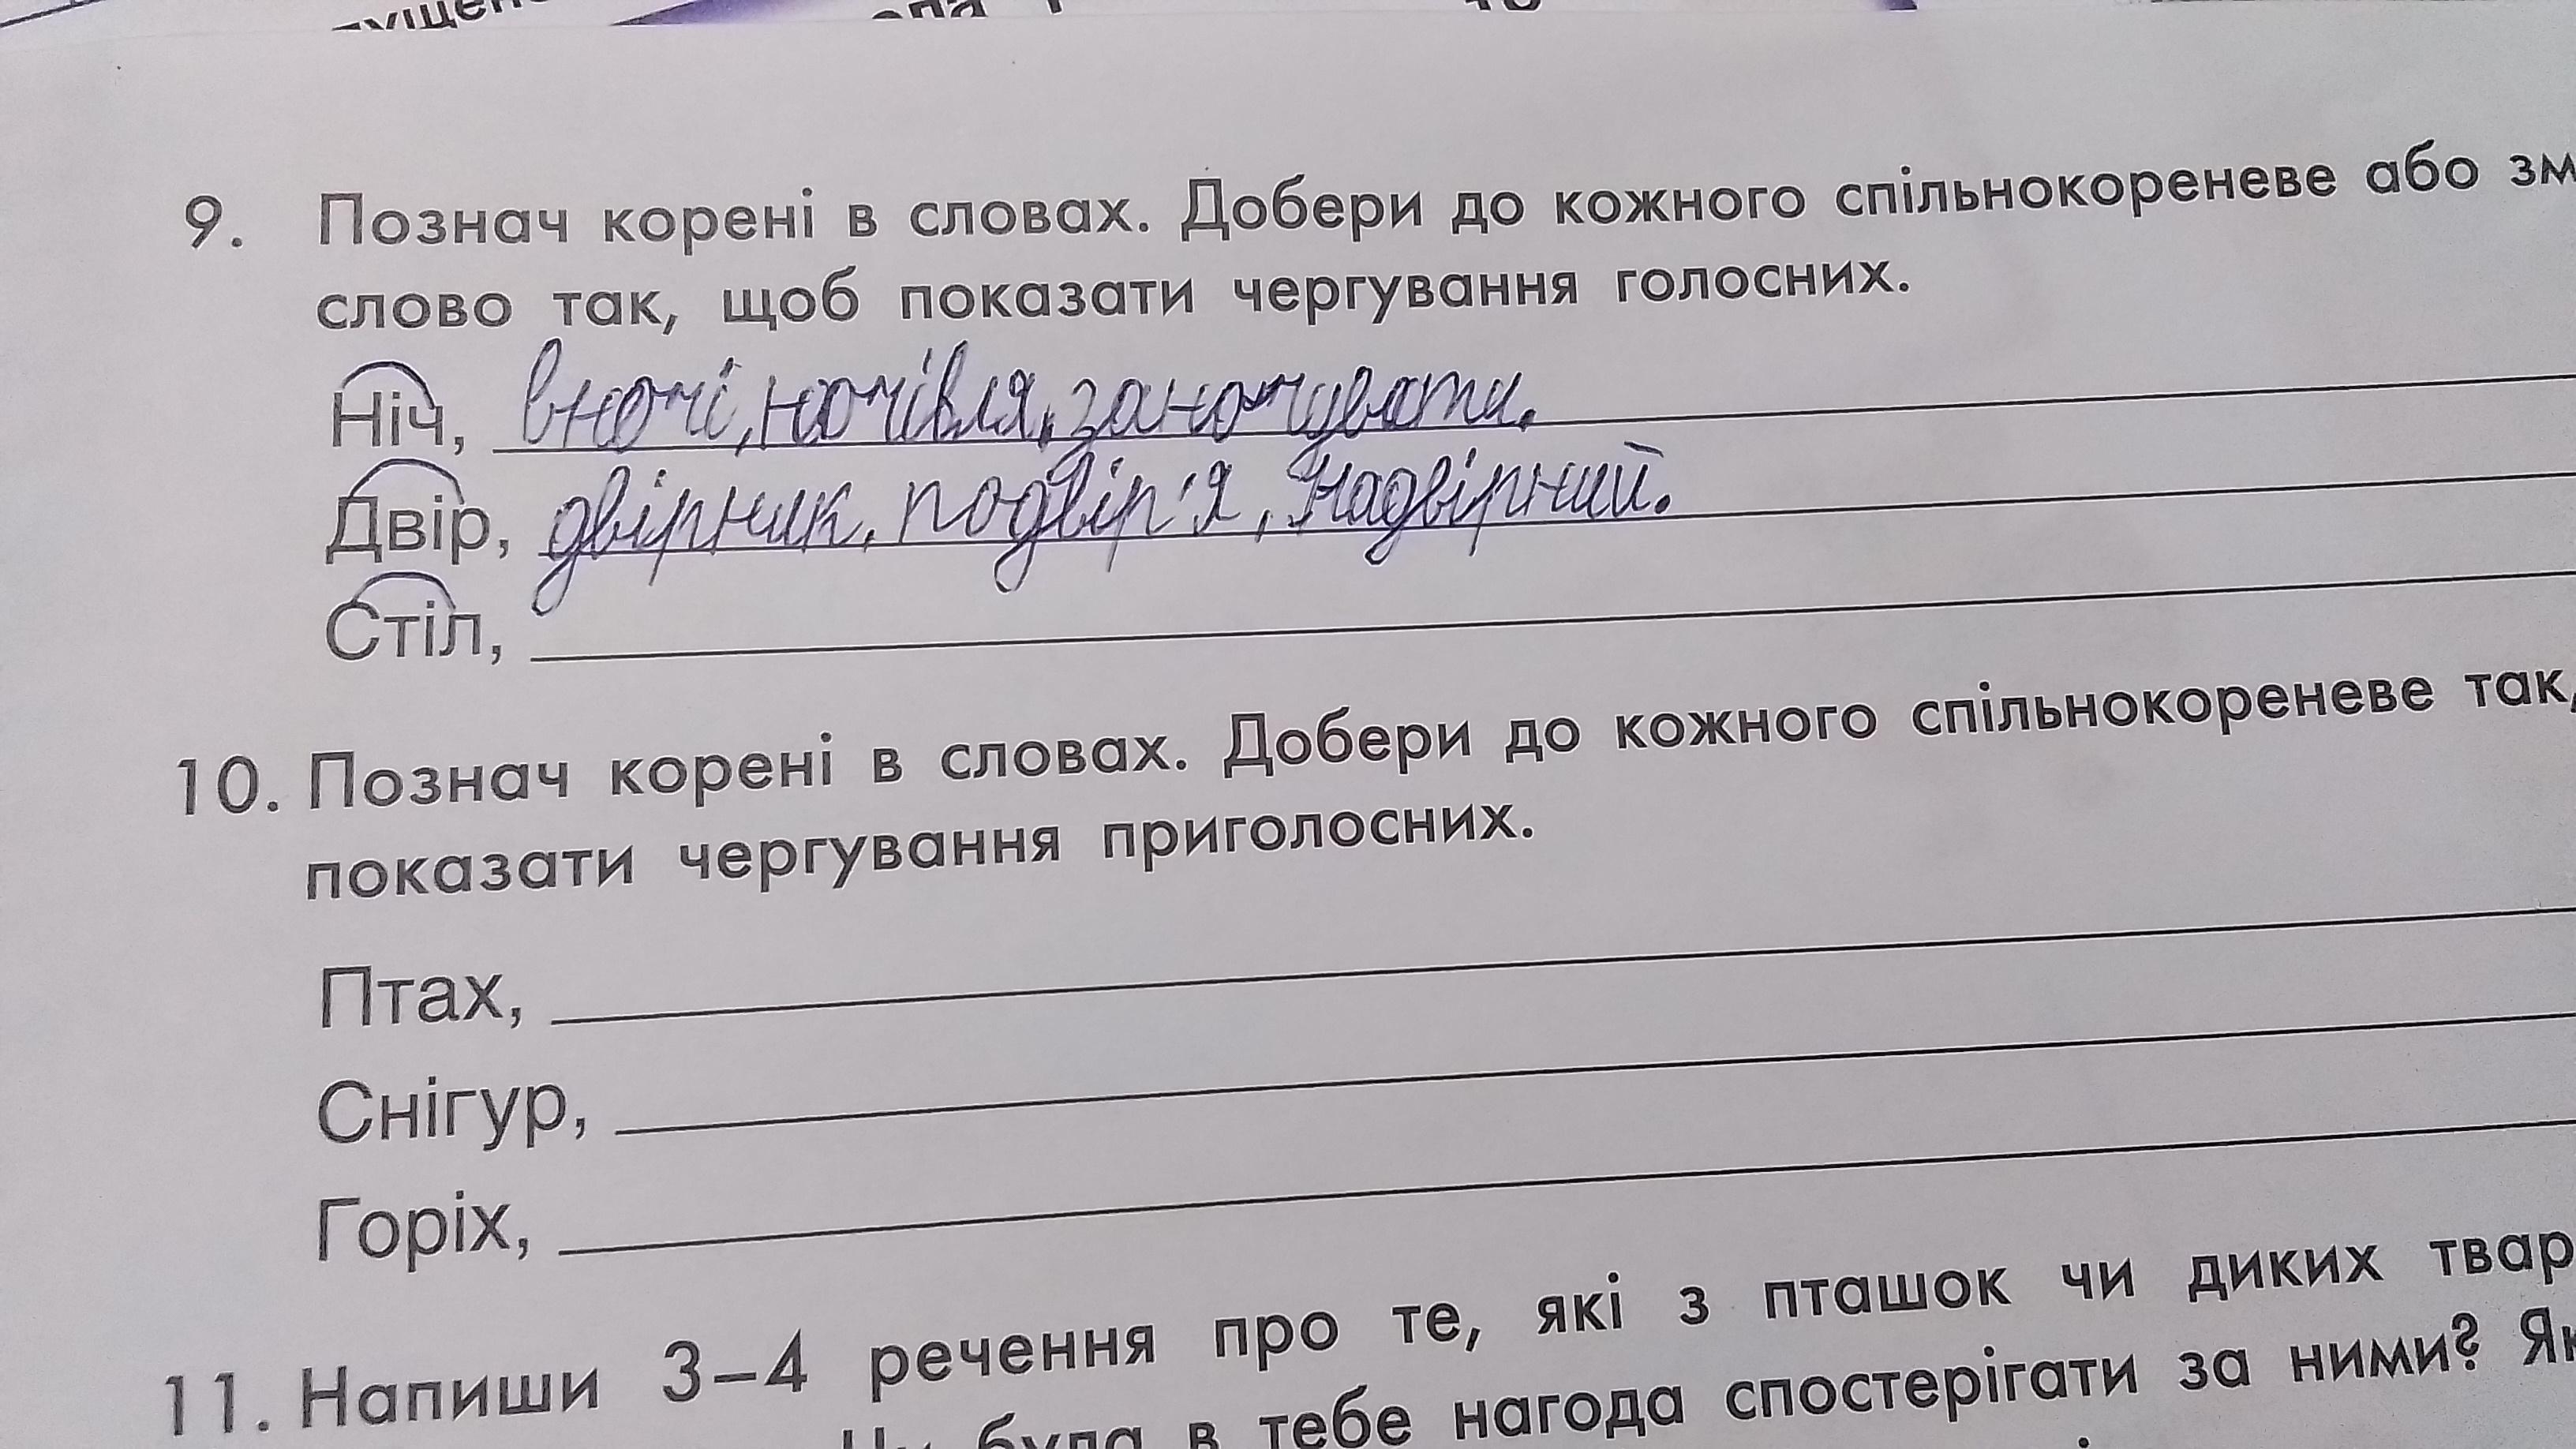 9. Познач корені в словах. Добери до кожного спільнокореневе або зм
слово так, щоб показати чергування голосних.
Ніч, вночі, ночівля, заночувати.
Двір, двірник, подвір'я, надвірний.
Стіл,
10. Познач корені в словах. Добери до кожного спільнокореневе так,
показати чергування приголосних.
Птах,
Снігур,
Горіх,
11. Напиши 3–4 речення про те, які з пташок чи диких твар
була в тебе нагода спостерігати за ними? Як